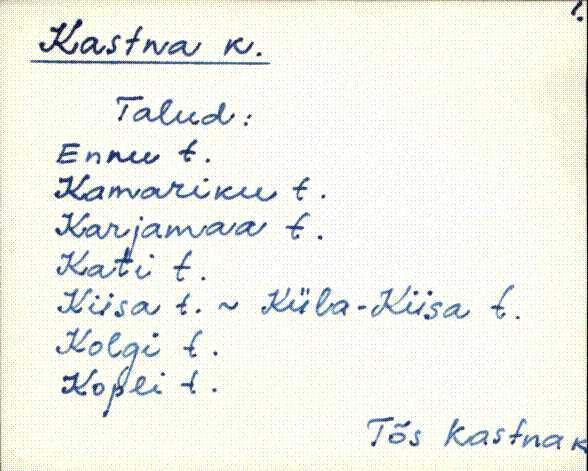 1.
Kastna k.
Talud:
Ennu t.
Kamariku t.
Karjamaa t.
Kati t.
Kiisa t. ~ Küla-Kiisa t.
Kolgi t.
Kopli t.
Tõs Kastna k